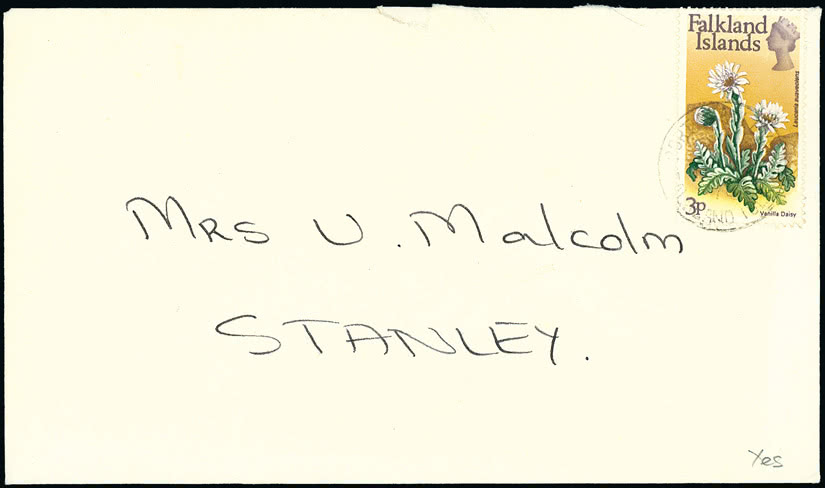 Falkland
Islands
Leuceria suaveolens
3p
Vanilla Daisy
Mrs U. Malcolm
STANLEY.
Yes